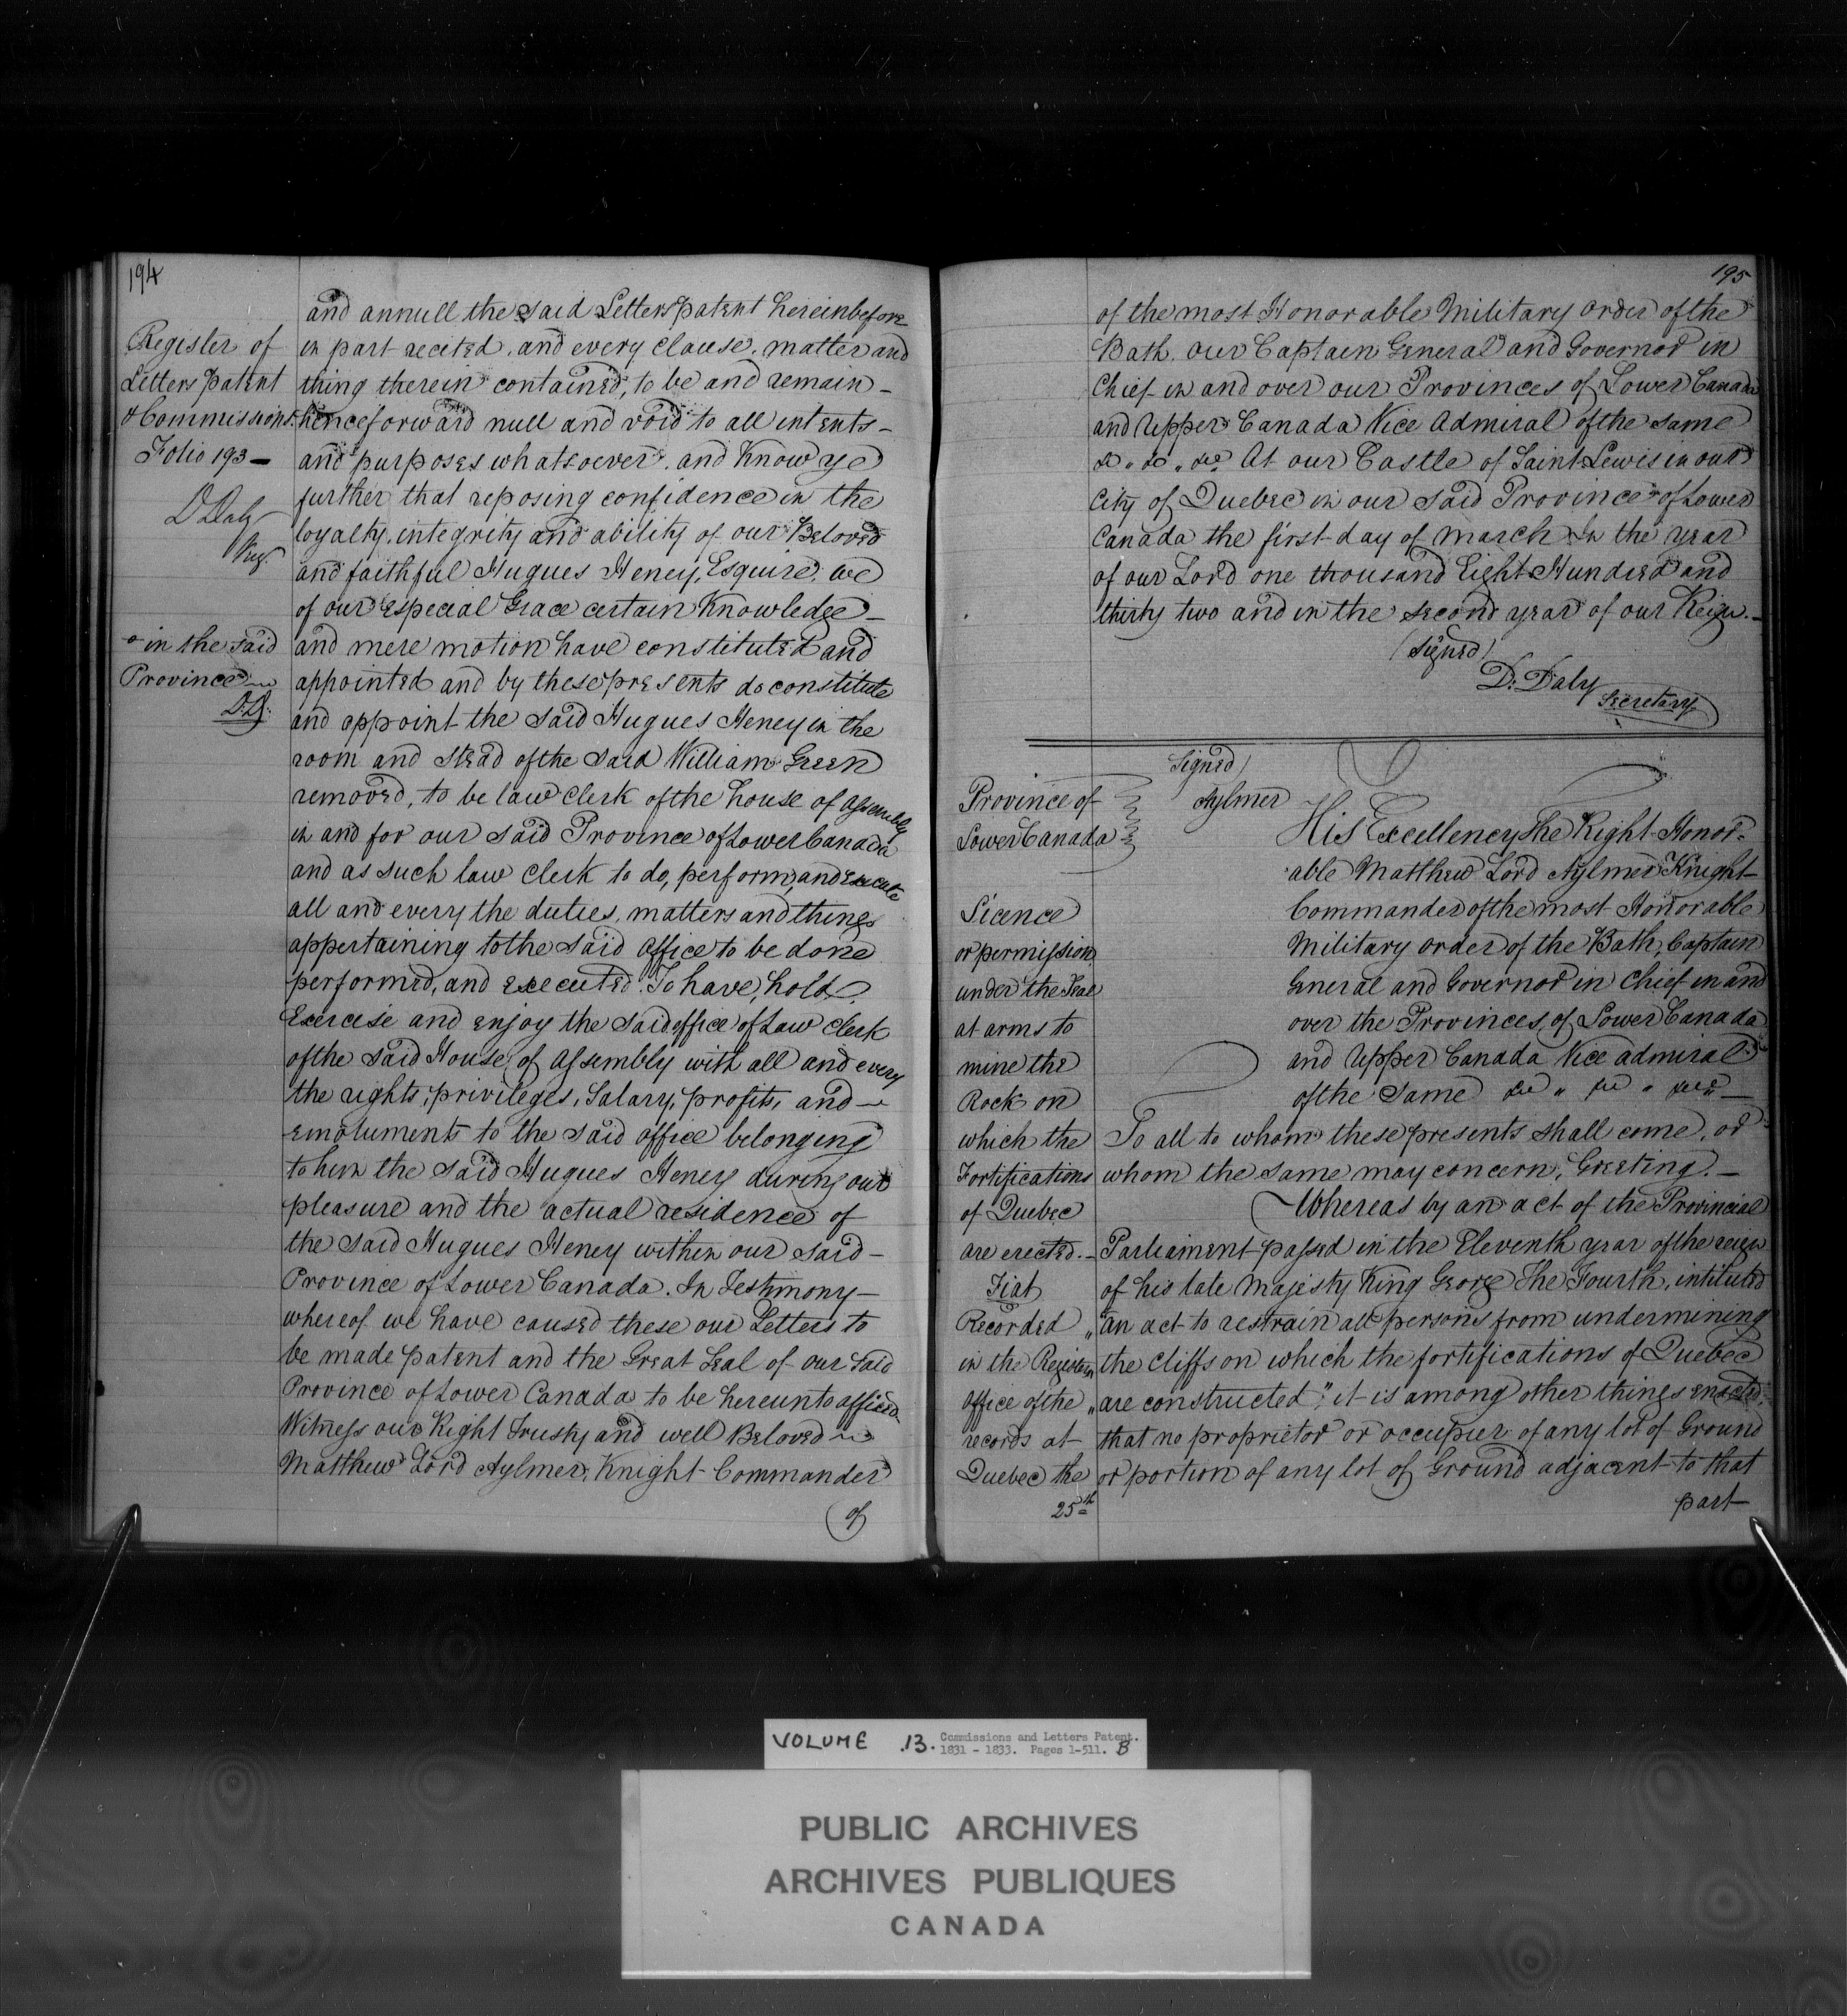 194
Register of
Letters Patent
& Commissions.
Folio 193 —
D Daly
Reg.
in the said
Province
D.D.
and annull the said Letters patent hereinbefore
in part recited, and every clause, matter and
thing therein contained, to be and remain —
henceforward null and void to all intents —
and purposes whatsoever. and Know ye
further that reposing confidence in the
loyalty, integrity and ability of our Beloved
and faithful Hugues Heney, Esquire, we
of our especial Grace certain Knowledge —
and mere motion have constituted and
appointed and by these presents do constitute
and appoint the said Hugues Heney in the
room and stead of the said William Green
removed, to be law clerk of the house of assembly
in and for our said Province of Lower Canada
and as such law clerk to do, perform, and execute
all and every the duties, matters and things
appertaining to the said office to be done
performed, and executed. To have, hold
Exercise and enjoy the said office of Law clerk
of the said House of assembly with all and every
the rights, privileges, Salary, profits, and —
emoluments to the said office belonging
to him the said Hugues Heney during our
pleasure and the actual residence of
the said Hugues Heney within our said —
Province of Lower Canada. In Testimony —
whereof we have caused these our Letters to
be made patent and the Great Seal of our said
Province of Lower Canada to be hereunto affixed
Witness our Right Trusty and well Beloved
Matthew Lord Aylmer, Knight Commander
of
195
of the most Honorable Military order of the
Bath, our Captain General and Governor in
Chief in and over our Provinces of Lower Canada
and Upper Canada Vice Admiral of the same
&c " &c " &c. At our Castle of Saint Lewis in our
City of Quebec in our said Province of Lower
Canada the first day of March In the year
of our Lord one thousand Eight Hundred and
thirty two and in the second year of our Reign. —
(Signed)
D. Daly
Secretary
Province of
Lower Canada
Signed)
Aylmer
His Excellency The Right Honor-
able Matthew Lord Aylmer Knight
Commander of the most Honorable
Military order of the Bath, Captain
General and Governor in Chief in and
over the Provinces of Lower Canada
and Upper Canada Vice admiral
of the Same &c " &c " &c —
Licence
or permission
under the Seal
at arms to
mine the
Rock on
which the
Fortifications
of Quebec
are erected. —
Fiat
Recorded
in the Registers
office of the
records at
Quebec the
25th
To all to whom these presents shall come, or
whom the same may concern, Greeting. —
Whereas by an act of the Provincial
Parliament passed in the Eleventh year of the reign
of his late Majesty King George The Fourth, intituled
"an act to restrain all persons from undermining
the cliffs on which the fortifications of Quebec
"are constructed", it is among other things enacted,
that no proprietor or occupier of any lot of Ground
or portion of any lot of Ground adjacent to that
part
VOLUME 13. Commissions and Letters Patent.
1831 - 1833. Pages 1-511. B
PUBLIC ARCHIVES
ARCHIVES PUBLIQUES
CANADA